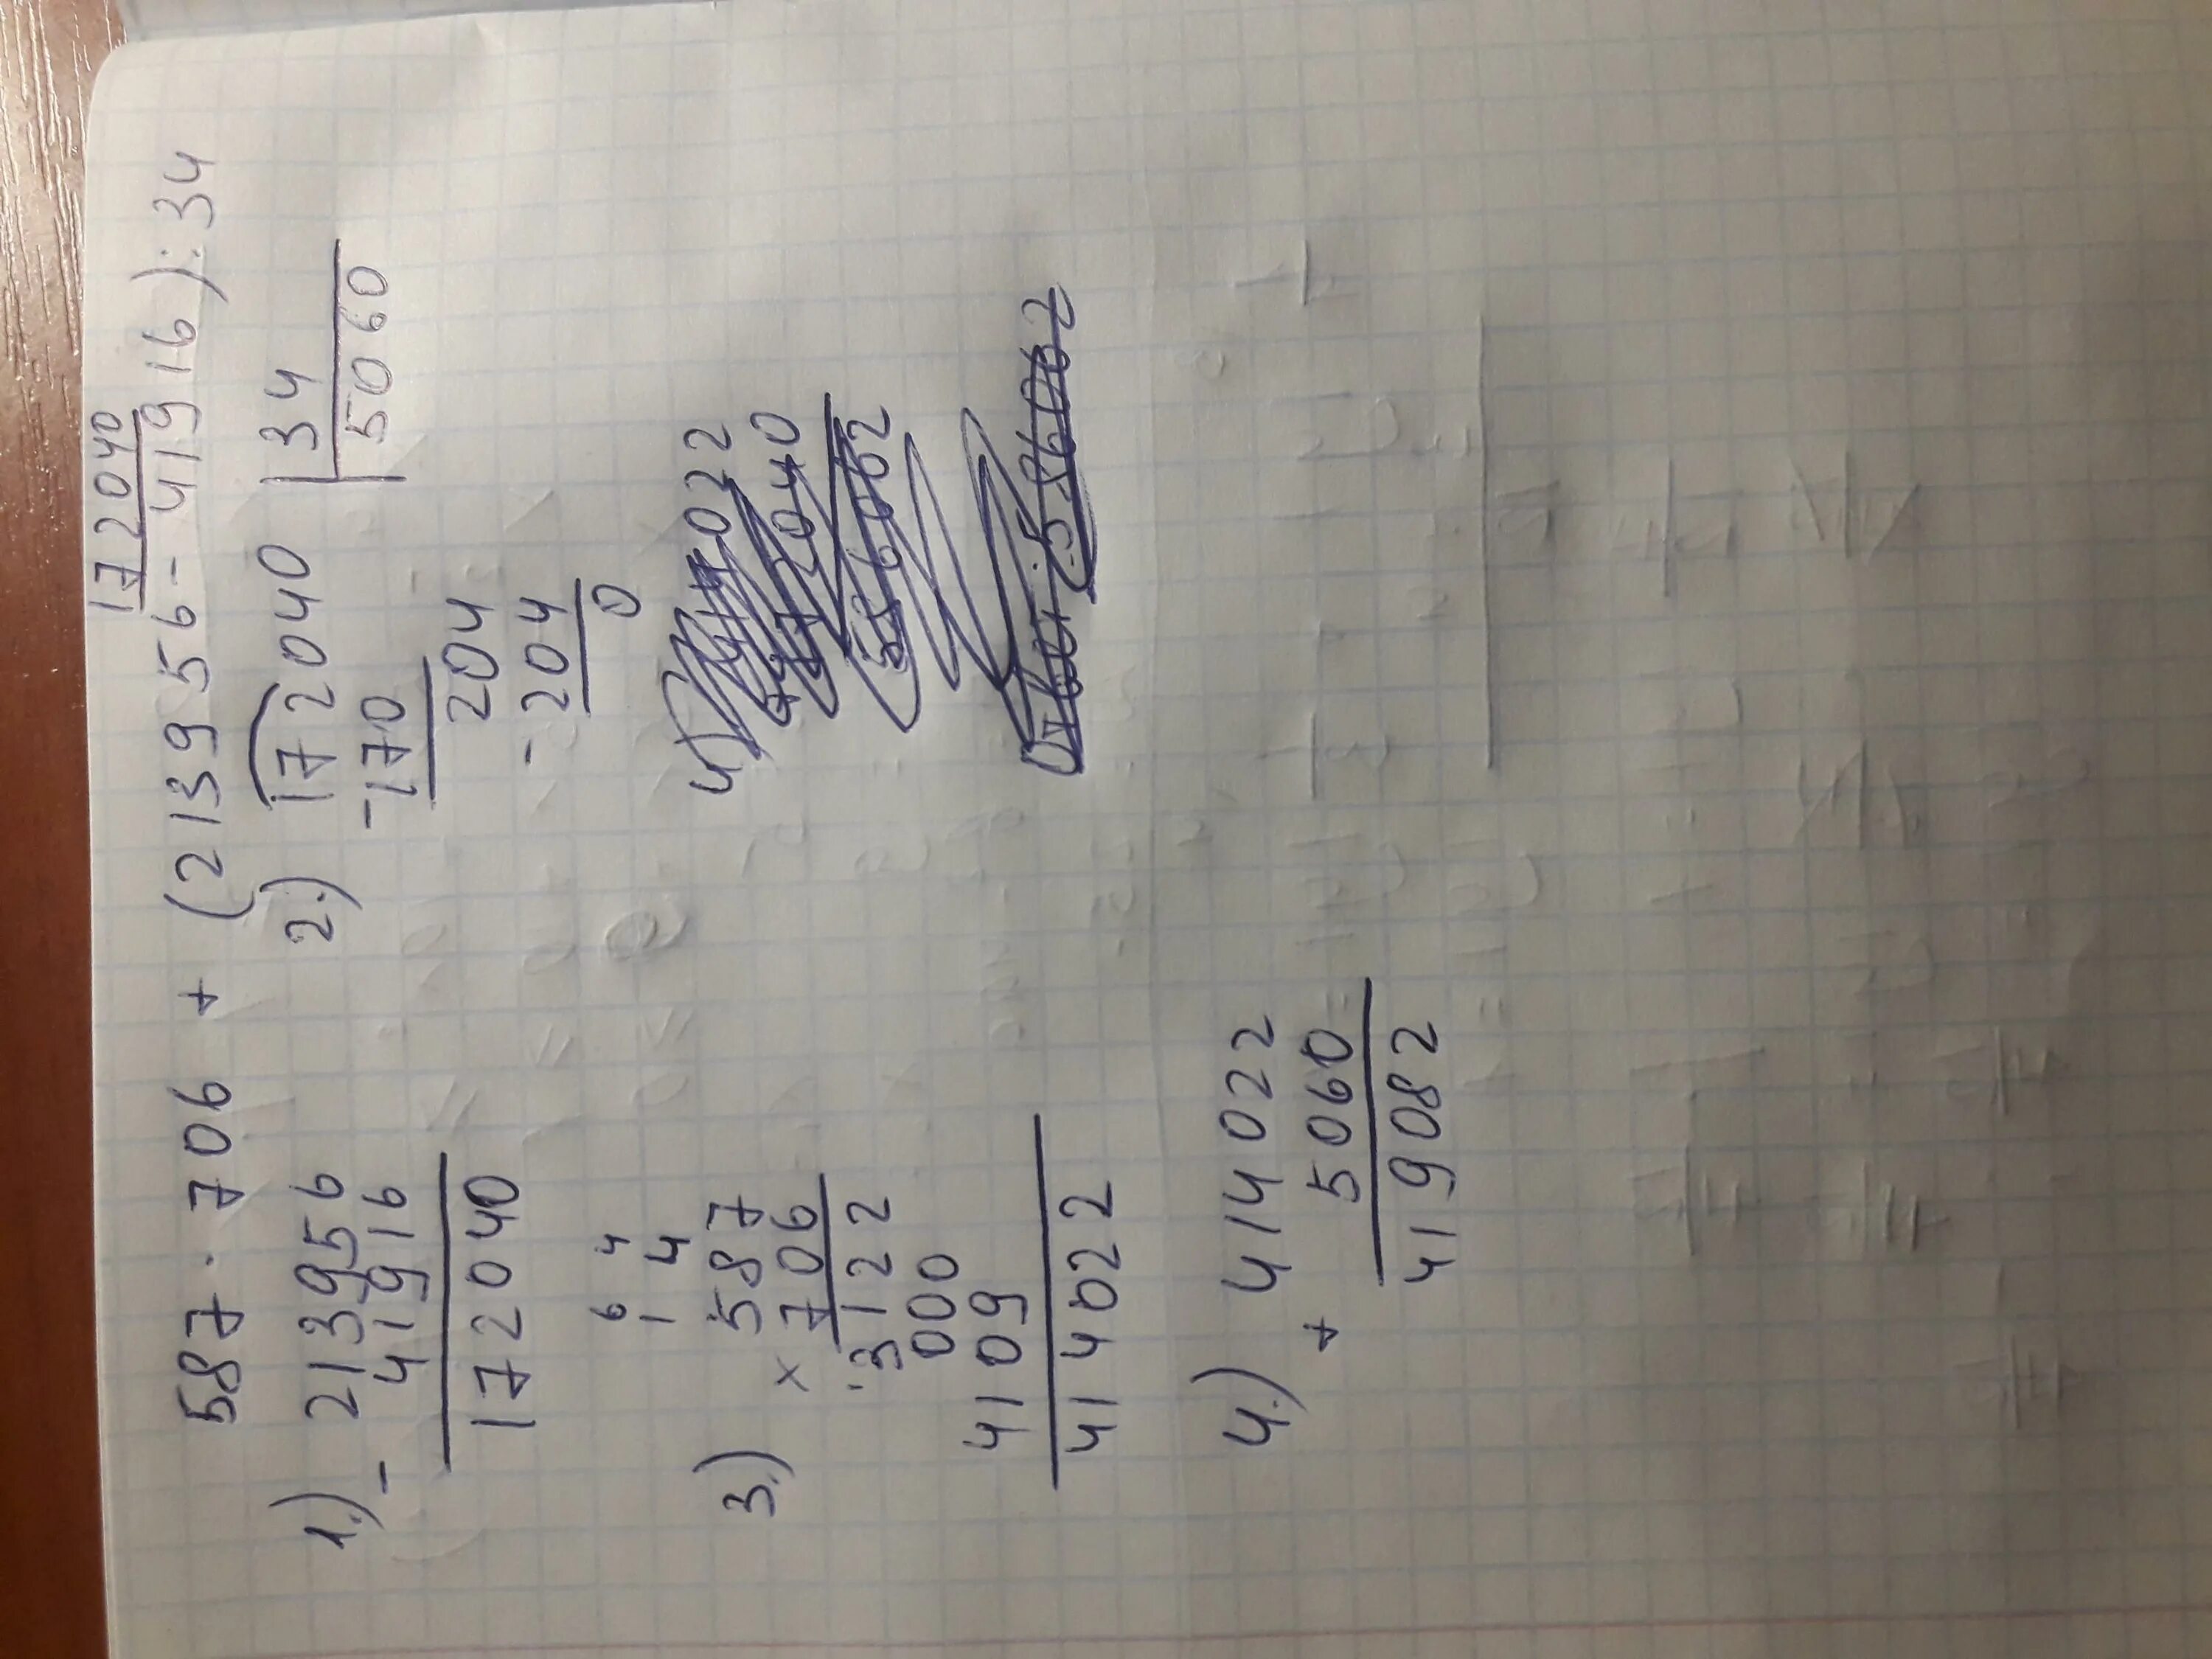 172040
587 · 706 + (213956 - 41916) : 34
1.) - 213956
41916
172040
2.) 172040 | 34
- 170 5060
204
- 204
0
6 4
1 4
3.) 587
× 706
3122
000
4109
414022
4)
4.) 414022
+ 5060
419082